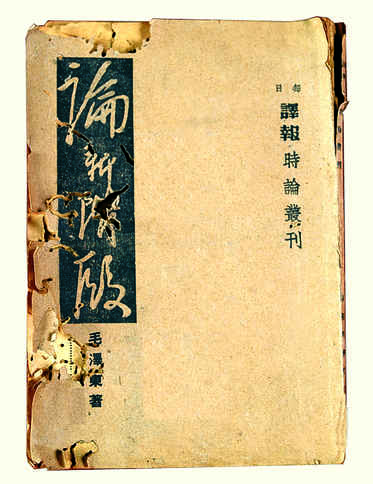 每日
譯報時論叢刊
論新階段
毛澤東著